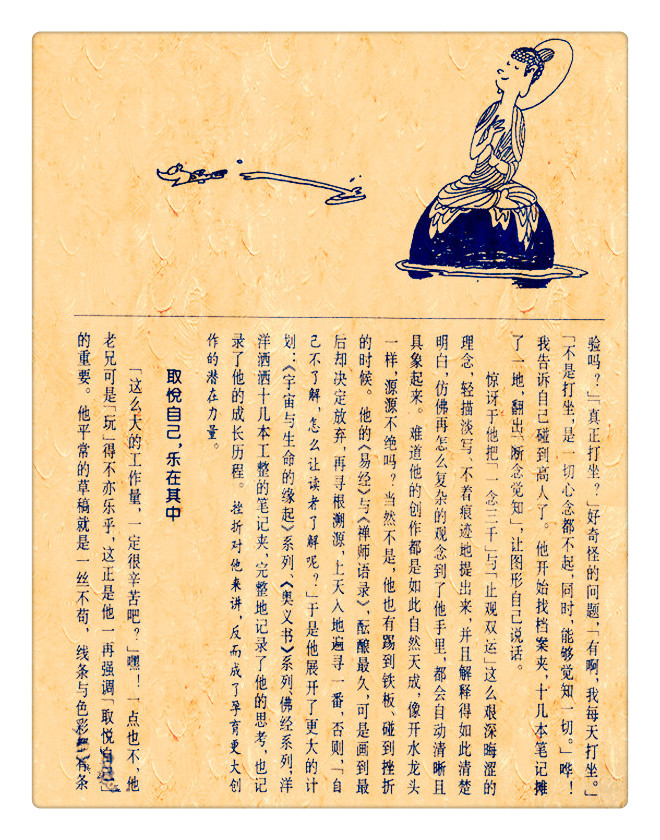 验吗？」「真正打坐？」好奇怪的问题，「有啊，我每天打坐。」
「不是打坐，是一切心念都不起，同时，能够觉知一切。」哗！
我告诉自己碰到高人了。他开始找档案夹，十几本笔记摊
了一地，翻出「断念觉知」，让图形自己说话。
惊讶于他把「一念三千」与「止观双运」这么艰深晦涩的
理念，轻描淡写、不着痕迹地提出来，并且解释得如此清楚
明白，仿佛再怎么复杂的观念到了他手里，都会自动清晰且
具象起来。难道他的创作都是如此自然天成，像开水龙头
一样，源源不绝吗？当然不是，他也有踢到铁板、碰到挫折
的时候。他的《易经》与《禅师语录》，酝酿最久，可是画到最
后却决定放弃，再寻根溯源，上天入地遍寻一番，否则，「自
己不了解，怎么让读者了解呢？」于是他展开了更大的计
划：《宇宙与生命的缘起》系列、《奥义书》系列、佛经系列，洋
洋洒洒十几本工整的笔记夹，完整地记录了他的思考，也记
录了他的成长历程。挫折对他来讲，反而成了孕育更大创
作的潜在力量。
取悦自己，乐在其中
「这么大的工作量，一定很辛苦吧？」嘿！一点也不，他
老兄可是「玩」得不亦乐乎，这正是他一再强调「取悦自己」
的重要。他平常的草稿就是一丝不苟，线条与色彩有条